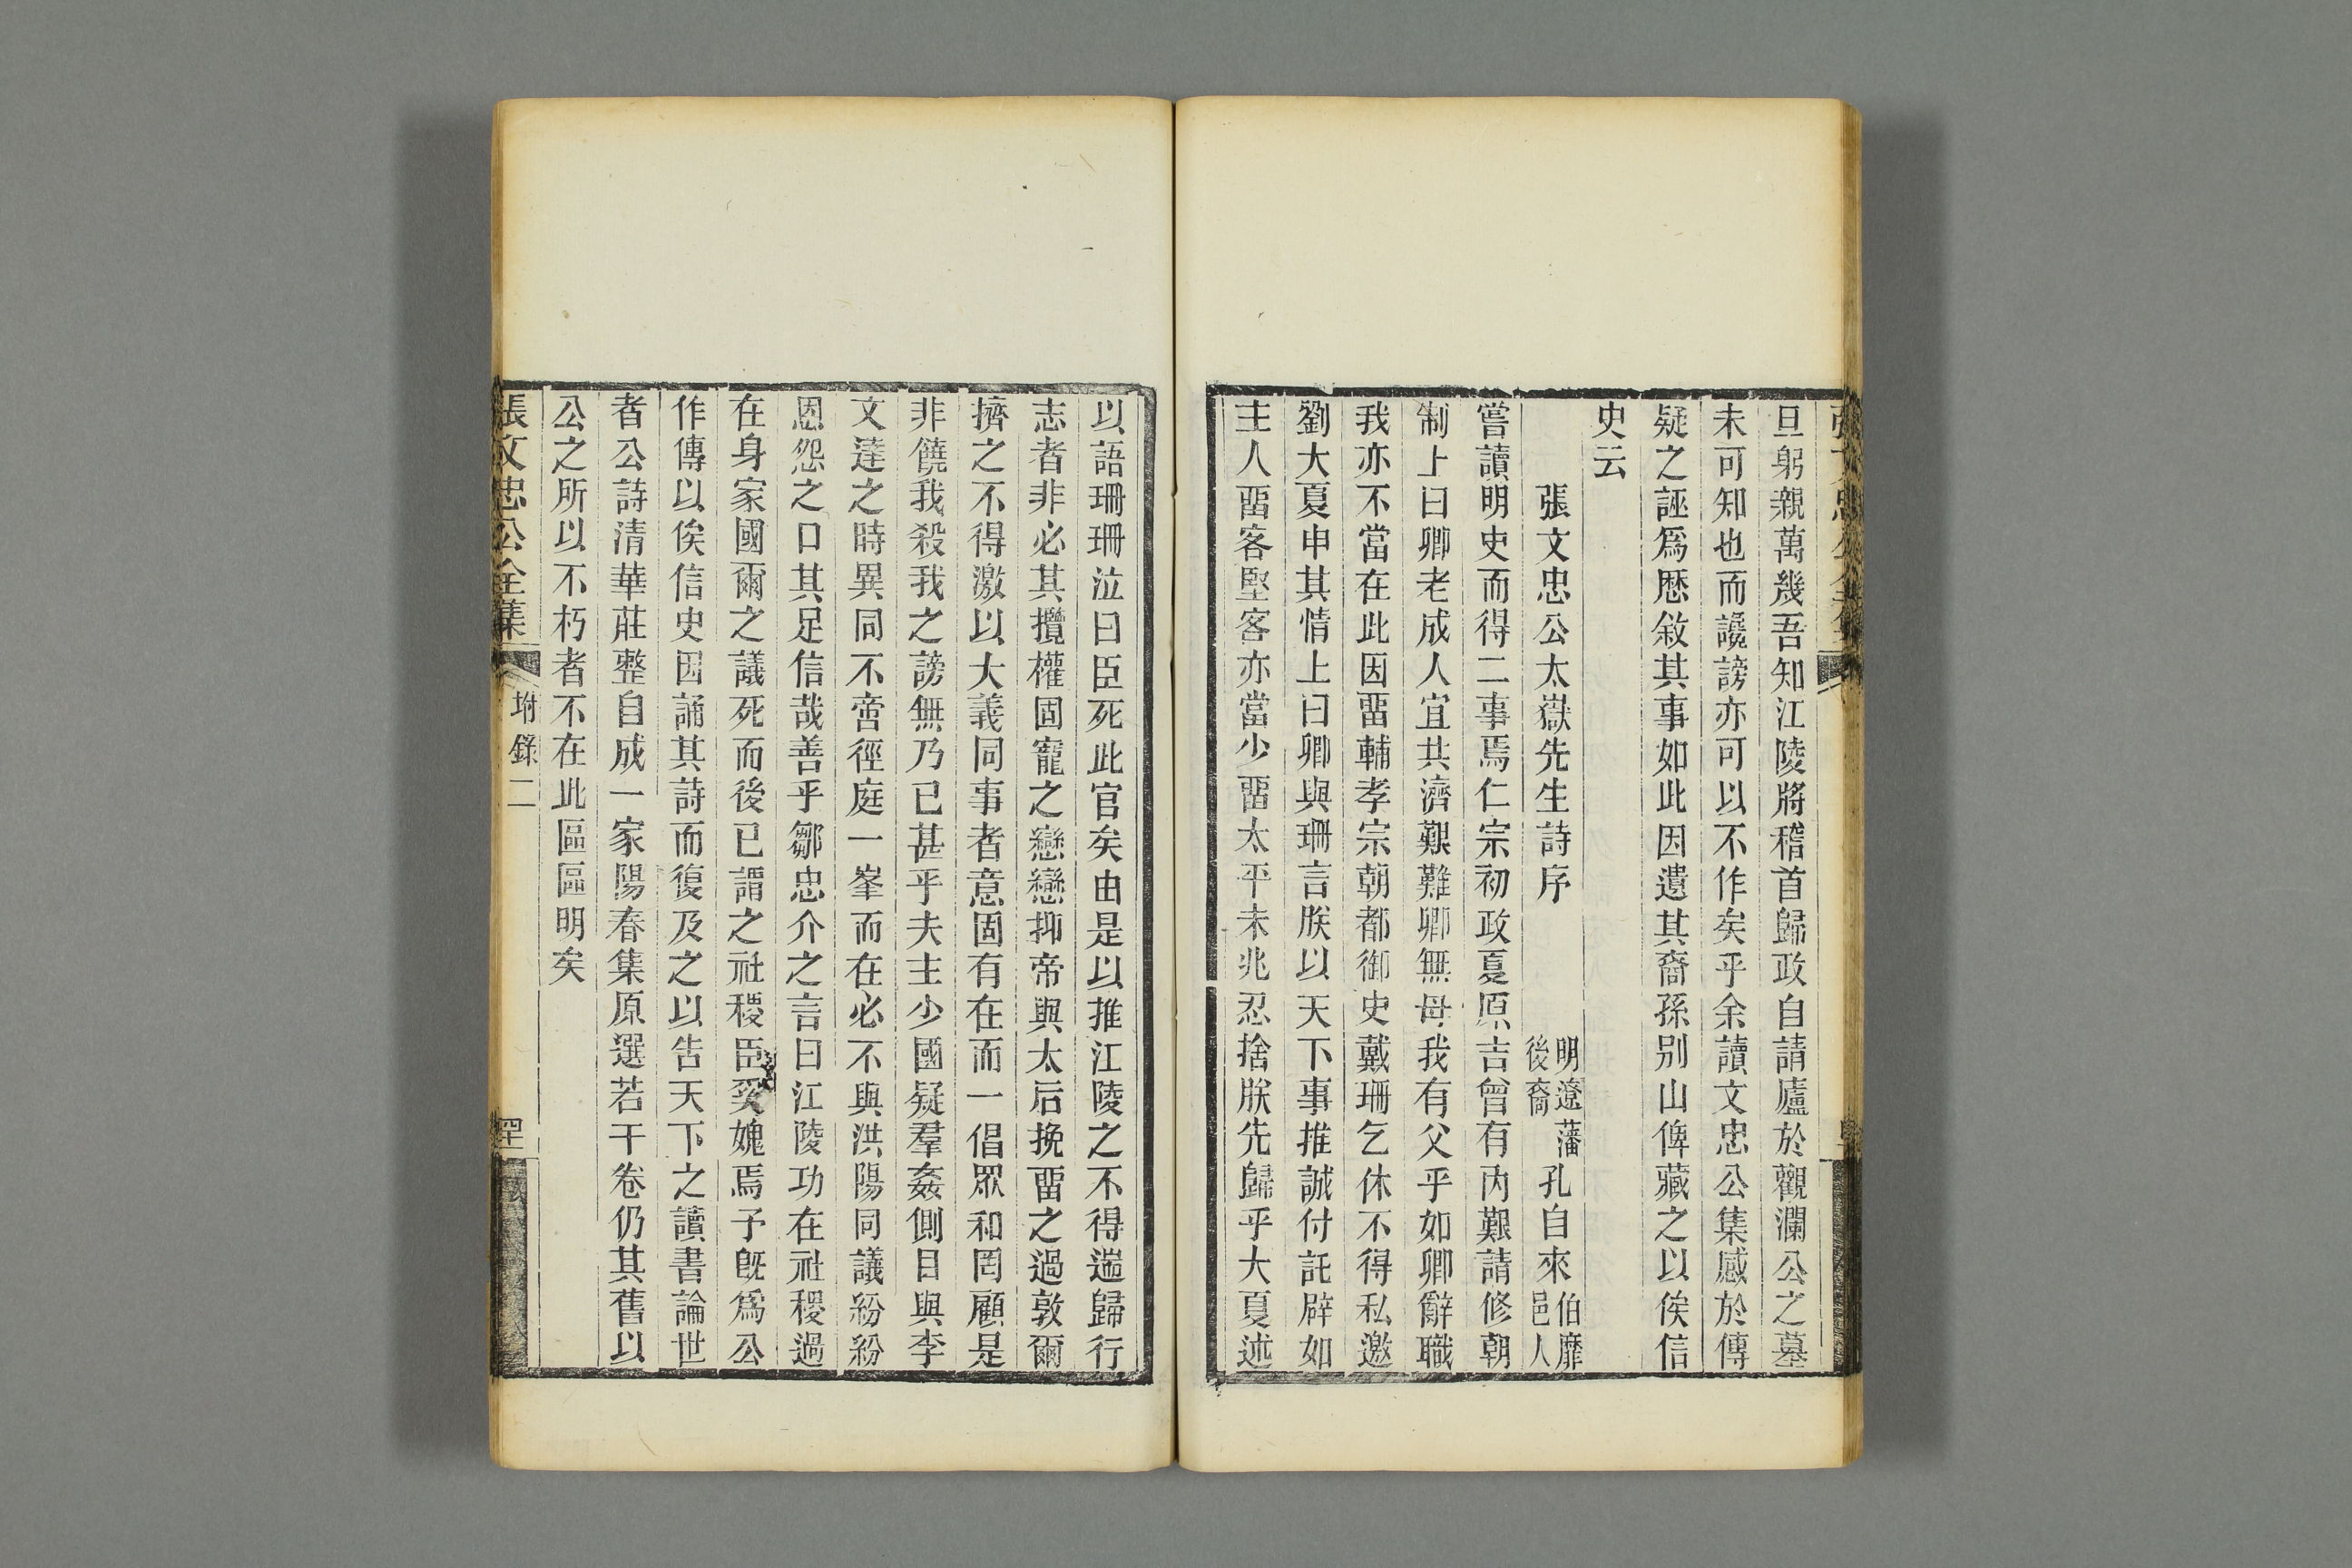 旦躬親萬幾吾知江陵將稽首歸政自請廬於觀瀾公之墓
未可知也而讒謗亦可以不作矣乎余讀文忠公集感於傳
疑之誣爲歴敘其事如此因遺其裔孫别山俾藏之以俟信
史云
張文忠公太嶽先生詩序
明遼藩後裔
孔自來
伯靡邑人
嘗讀明史而得二事焉仁宗初政夏原吉曾有內艱請修朝
制上曰卿老成人宜共濟艱難卿無母我有父乎如卿辭職
我亦不當在此因畱輔孝宗朝都御史戴珊乞休不得私邀
劉大夏申其情上曰卿與珊言朕以天下事推誠付託辟如
主人畱客堅客亦當少畱太平未兆忍捨朕先歸乎大夏述
以語珊珊泣曰臣死此官矣由是以推江陵之不得遄歸行
志者非必其攬權固寵之戀戀抑帝與太后挽畱之過敦爾
擠之不得激以大義同事者意固有在而一倡眾和罔顧是
非饒我殺我之謗無乃已甚乎夫主少國疑羣姦側目與李
文達之時異同不啻徑庭一峯而在必不與洪陽同議紛紛
恩怨之口其足信哉善乎鄒忠介之言曰江陵功在社稷過
在身家國爾之議死而後已謂之社稷臣奚媿焉予旣爲公
作傳以俟信史因誦其詩而復及之以告天下之讀書論世
者公詩清華莊整自成一家陽春集原選若干卷仍其舊以
公之所以不朽者不在此區區明矣
張文忠公全集
坿錄二